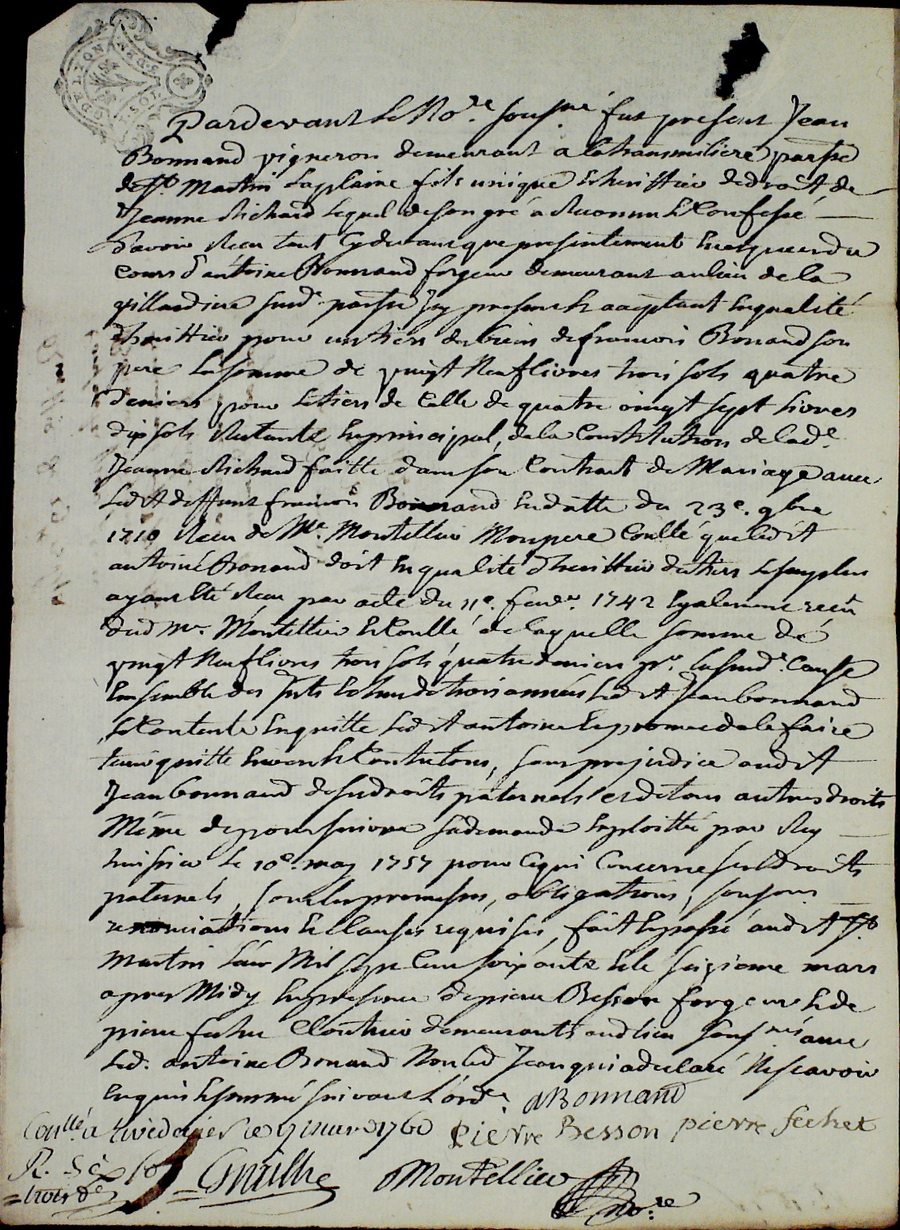 GDE LYON
Pardevant le No.re sousné fut present Jean
Bonnand vigneron demeurant a la transmiliere parsse
de St Martin Laplaine fils unique et herittier de droit de
Jeanne Richard lequel de son gré a Reconnu et Confessé
d'avoir Receu tant cy devant que presentement
Cours d'antoine Bonnand forgeur demeurant au lieu de la
villardiere susd. parsse Icy present et acceptant en qualité
d'herittier pour un tiers des biens de francois Bonand son
pere la somme de vingt Neuf livres trois sols quatre
deniers pour le tiers de Celle de quatre vingt sept livres
dix sols Restante en principal, de la Constitution de lad.e
Jeanne Richard faitte dans son Contract de Mariage avec
Ledit deffunt francois Bonnand en datte du 23e. 9bre
1710 Receu de Me. Montellier Mon pere Conllé que ledit
antoine Bonand doit en qualité d'herittier du tiers le surplus
ayant été Receu par acte du 11e. fevr. 1742 Egalement receu
dud Me. Montellier et Conllé de laquelle somme de
vingt Neuf livres trois sols quatre deniers pr. la susd. Cause
Ensemble des Intts de trois années ledit Jean bonnand
se Contente En quitte ledit antoine et promet de le faire
tenir quitte Envers et Contre tous, sans prejudice audit
Jean bonnand de ses droits paternels et de tous autres droits
Même de poursuivre sa demande Exploittée par Rey
huissier le 10e may 1757 pour ce qui Concerne ses droits
paternels, sous les promesses, obligations, soumis.
renonciations et Clauses requises, fait et passé audit St
Martin L'an Mil sept Cent soixante et le seizieme mars
apres Midy En presence de pierre Besson forgeur et de
pierre fechet Cloutier demeurants audlieu sousnés avec
Led. antoine Bonand Non led Jean qui a declaré Ne scavoir
Enquis et sommé suivant L'ord.e ABonnand
Conllé a Rivedegier le 17 mars 1760 Pierre Besson pierre fechet
R. trois d.
Montellier
No.re